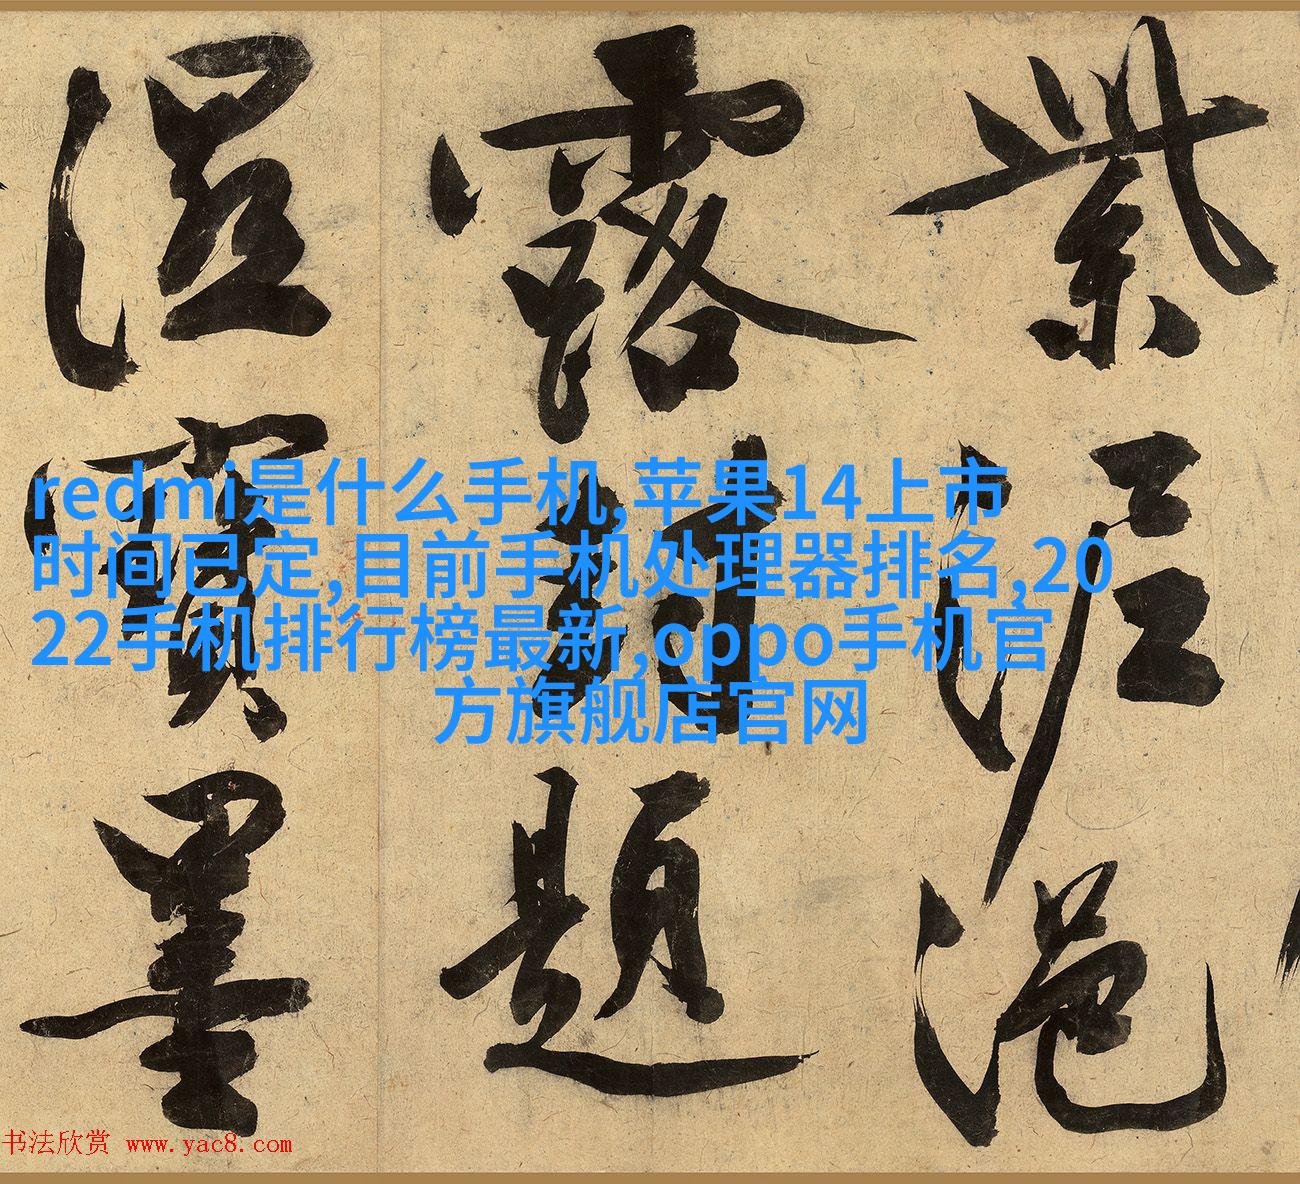 紫泥浥
露封題
濕寶墨
redmi是什么手机,苹果14上市
时间已定,目前手机处理器排名,20
22手机排行榜最新,oppo手机官
方旗舰店官网
书法欣赏 www.yac8.com